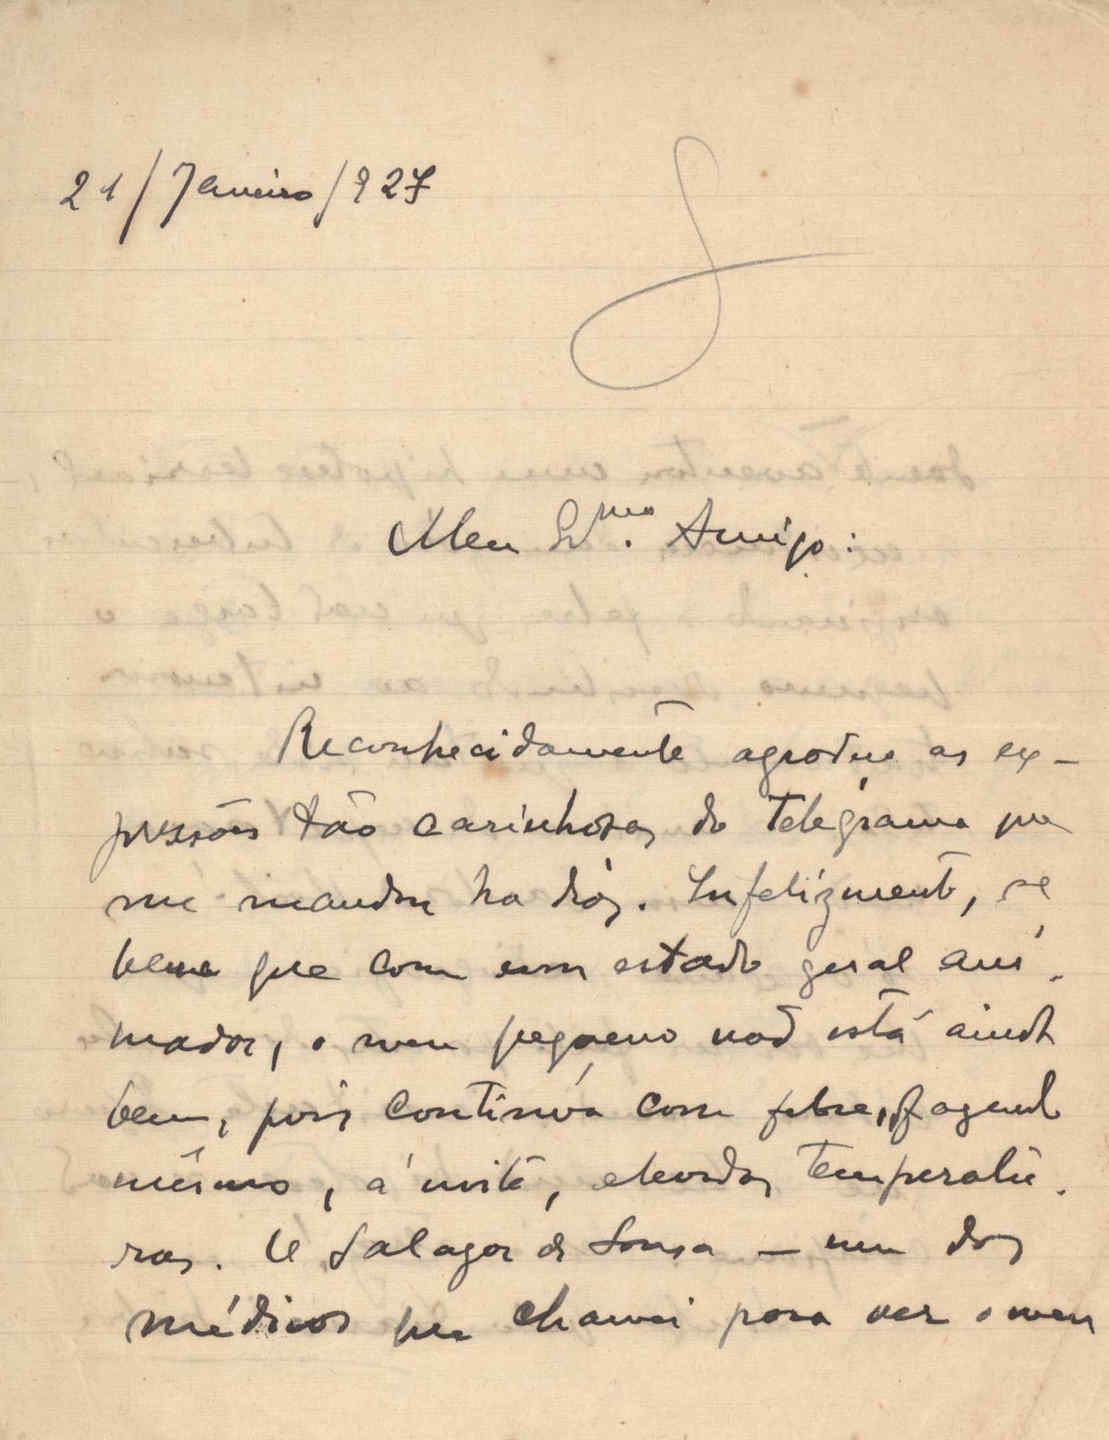 21/Janeiro/927
Meu Ex.mo Amigo:
Reconhecidamente agradeço as ex-
pressões tão carinhosas do telegrama que
me mandou ha dias. Infelizmente, se
bem que com um estado geral ani-
mador, o meu pequeno não está ainda
bem, pois continúa com febre, fazendo
mesmo, á noite, elevadas temperatu-
ras. O Salazar de Sousa — um dos
médicos que chamei para ver o meu